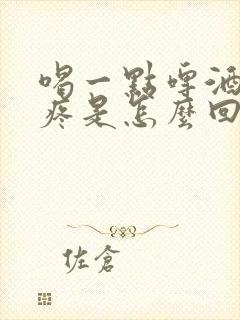 喝一點啤酒
疼是怎麼回
佐倉